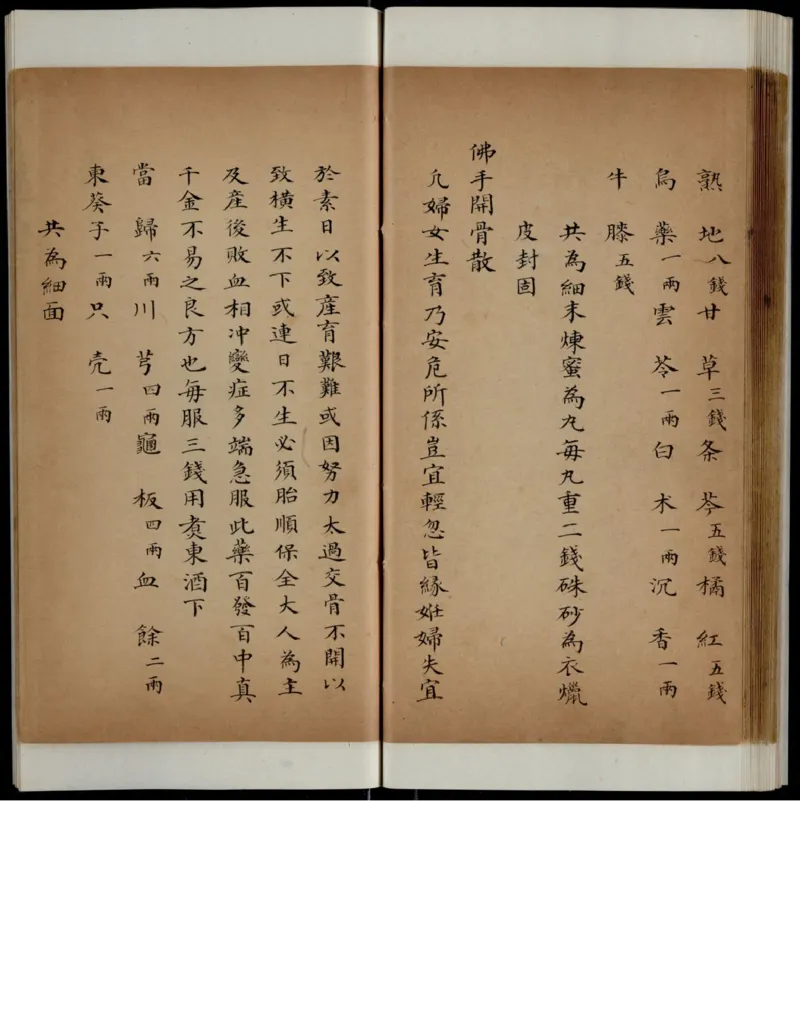 熟地八錢甘草三錢条芩五錢橘紅五錢
烏藥一兩雲苓一兩白术一兩沉香一兩
牛膝五錢
共為細末煉蜜為丸每丸重二錢硃砂為衣蠟
皮封固
佛手開骨散
凡婦女生育乃安危所係豈宜輕忽皆緣妊婦失宜
於素日以致產育艱難或因努力太過交骨不開以
致橫生不下或連日不生必須胎順保全大人為主
及產後敗血相冲變症多端急服此藥百發百中真
千金不易之良方也每服三錢用煑東酒下
當歸六兩川芎四兩龜板四兩血餘二兩
東葵子一兩只壳一兩
共為細面